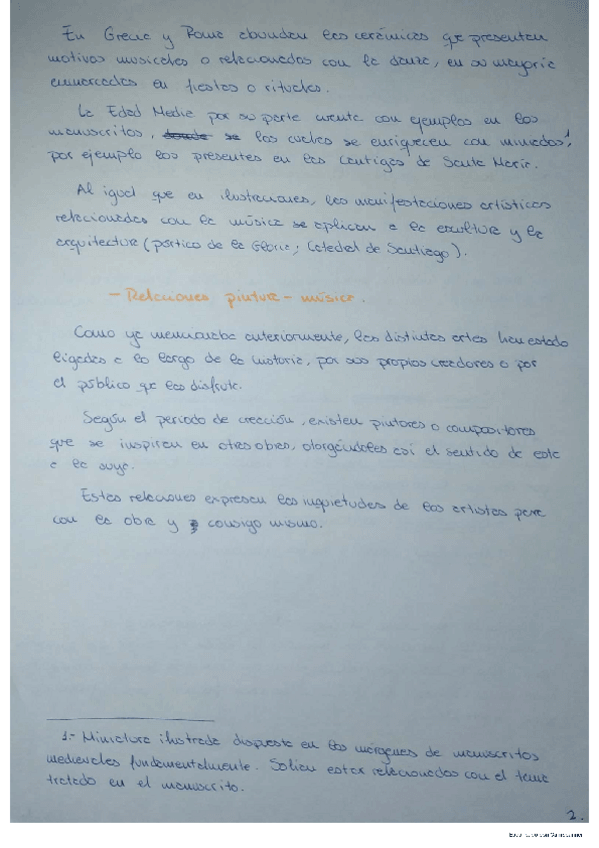 En Grecia y Roma abundan las cerámicas que presentan
motivos musicales o relacionados con la danza, en su mayoría
enmarcadas en fiestas o rituales.
La Edad Media por su parte cuenta con ejemplos en los
manuscritos, donde se los cuales se enriquecen con miniados¹,
por ejemplo los presentes en las Cantigas de Santa María.
Al igual que en ilustraciones, las manifestaciones artísticas
relacionadas con la música se aplican a la escultura y la
arquitectura (pórtico de la Gloria; Catedral de Santiago).
- Relaciones pintura - música.
Como ya mencionaba anteriormente, las distintas artes han estado
ligadas a lo largo de la historia, por sus propios creadores o por
el público que las disfruta.
Según el periodo de creación, existen pintores o compositores
que se inspiran en otras obras, otorgándoles así el sentido de esta
a la suya.
Estas relaciones expresan las inquietudes de los artistas para
con la obra y consigo mismo.
1.- Miniatura ilustrada dispuesta en los márgenes de manuscritos
medievales fundamentalmente. Solían estar relacionadas con el tema
tratado en el manuscrito.
2.